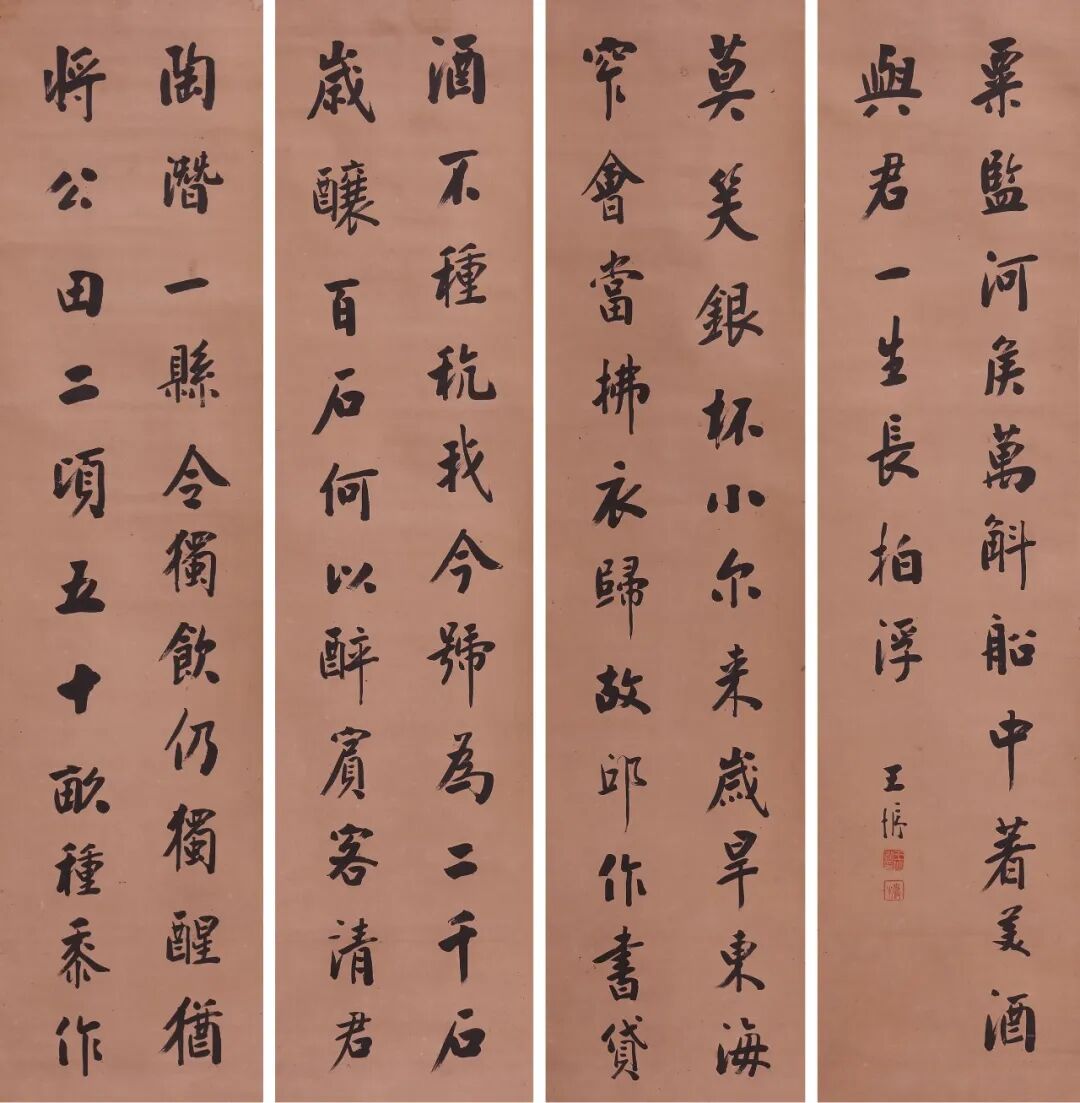 陶潛一縣令獨飲仍獨醒猶
将公田二頃五十畝種黍作
酒不種秔我今號為二千石
歲釀百石何以醉賓客清君
莫笑銀杯小尔来歲旱東海
窄會當拂衣歸故邱作書貸
粟監河侯萬斛船中着美酒
與君一生長拍浮
王